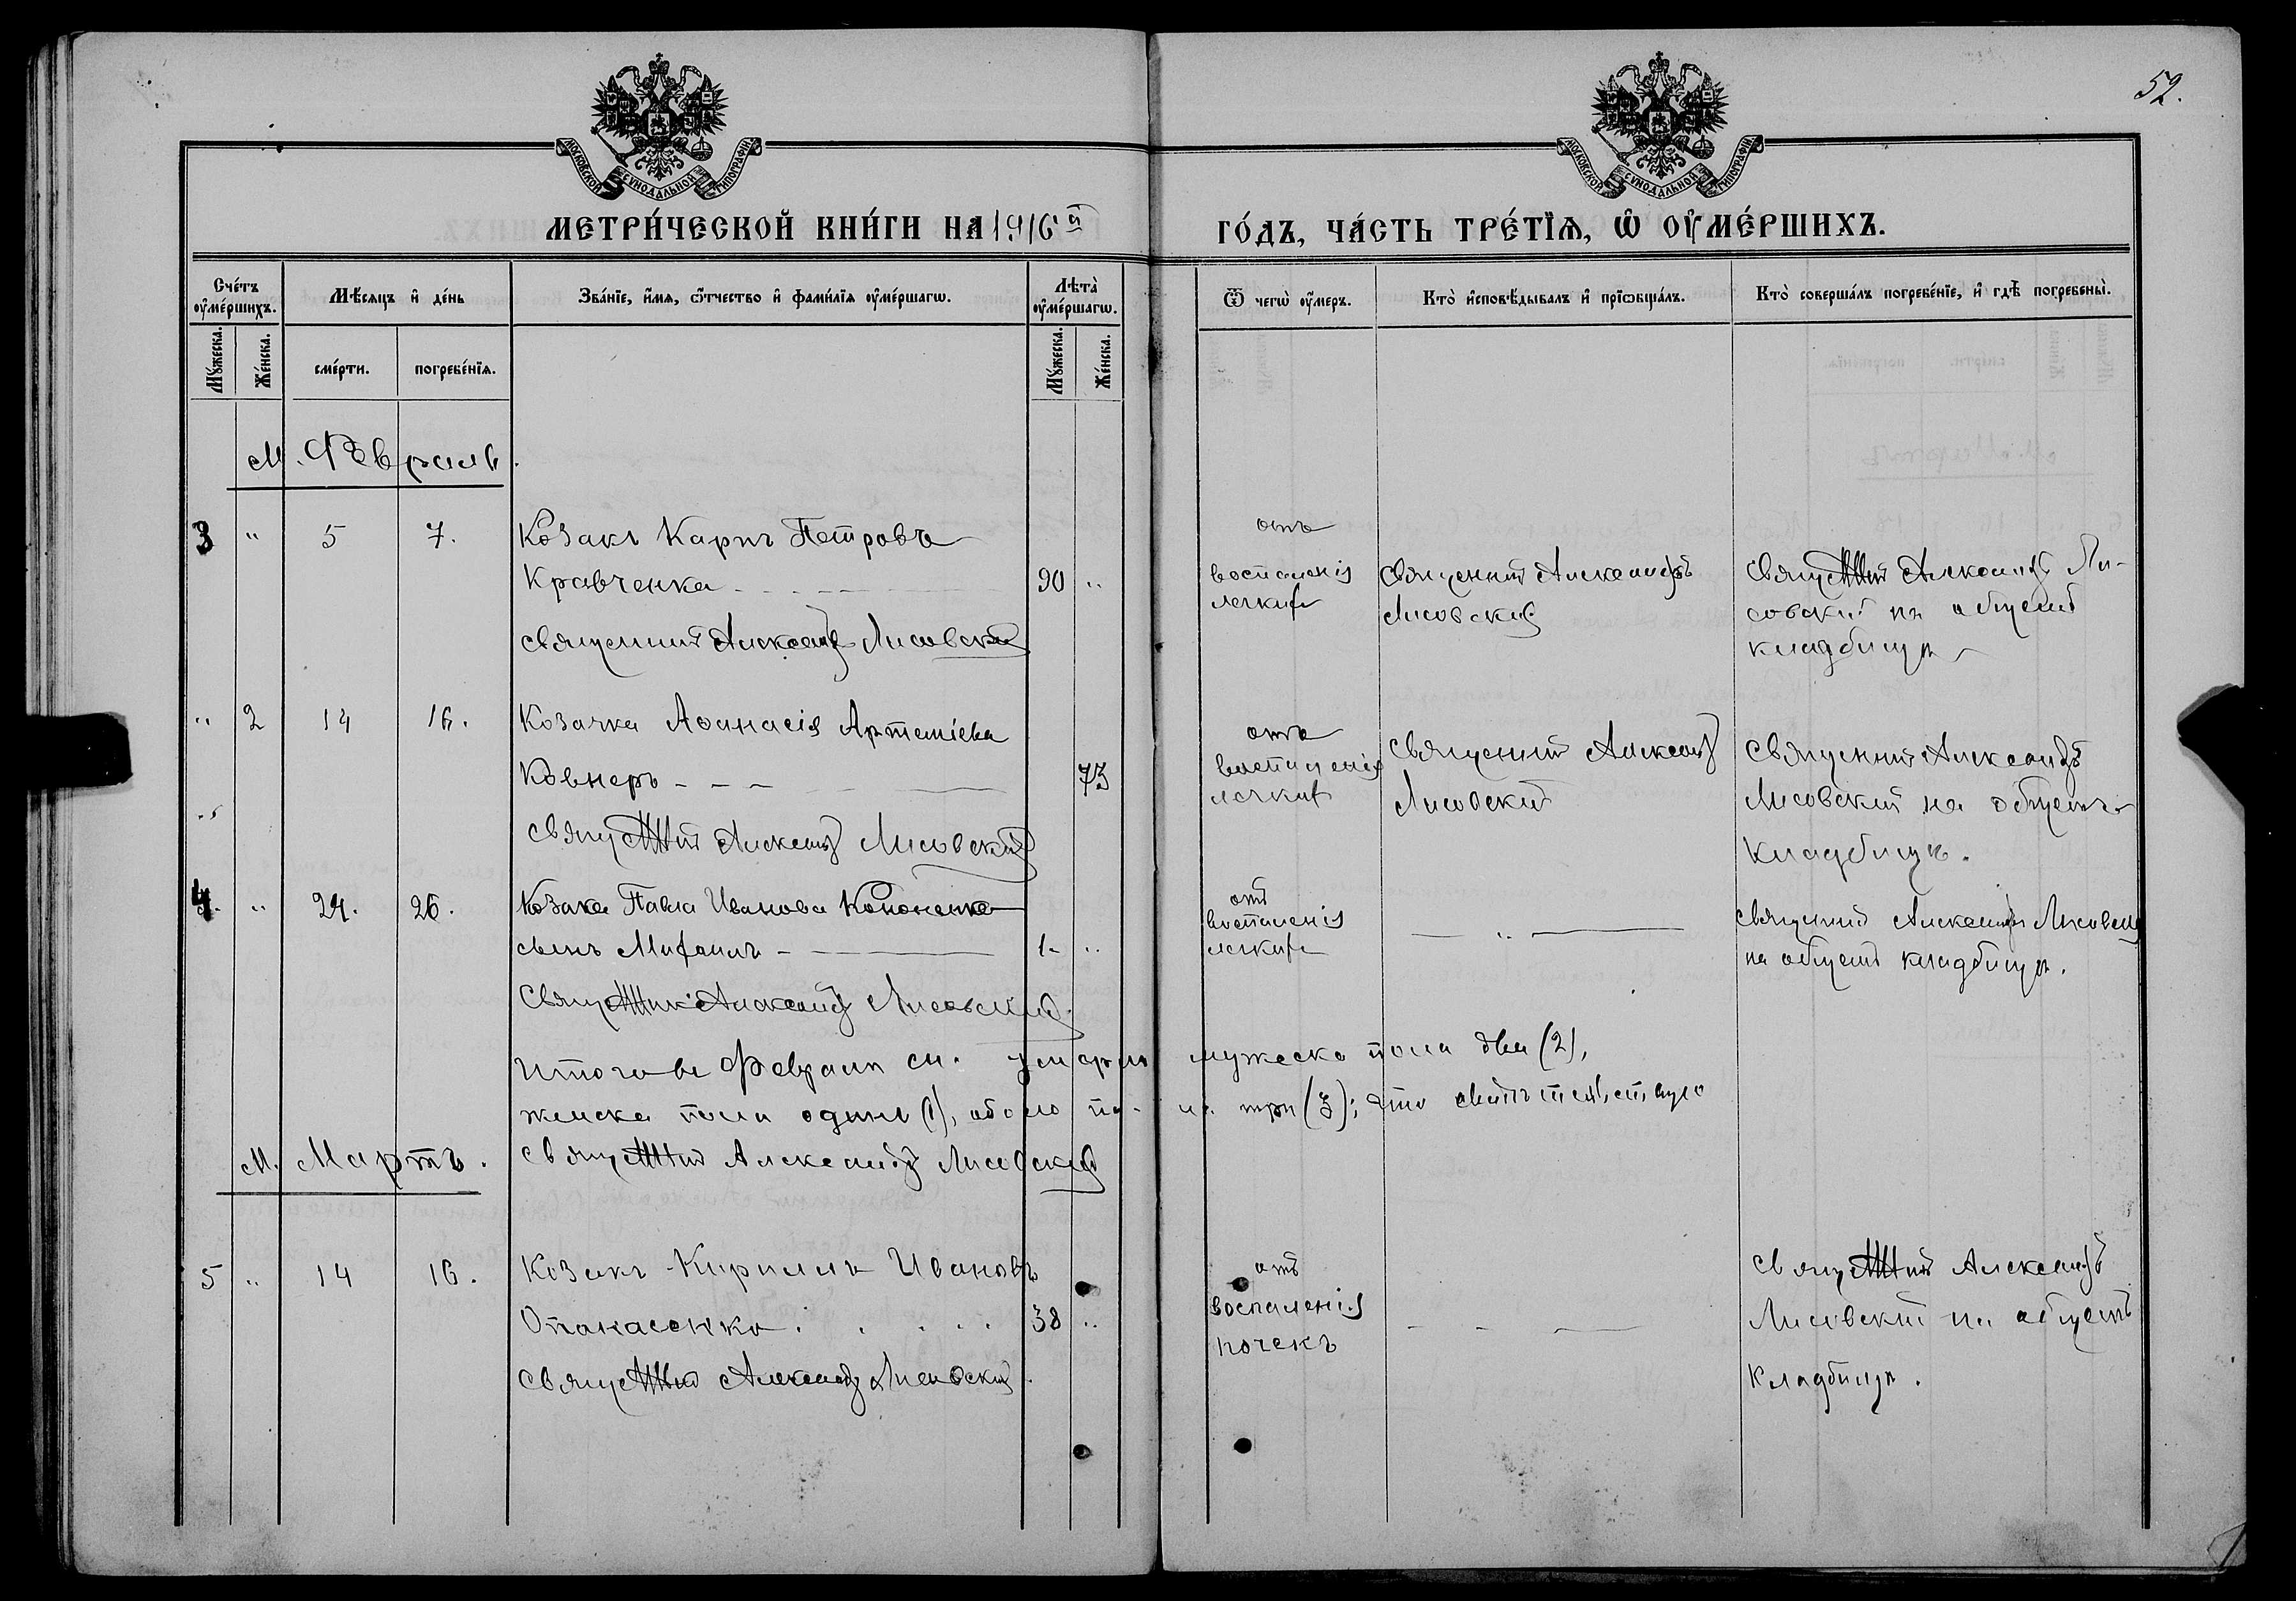 52.
МОСКОВСКОЙ СѴНОДАЛЬНОЙ ТИПОГРАФІИ
МОСКОВСКОЙ СѴНОДАЛЬНОЙ ТИПОГРАФІИ
МЕТРИ́ЧЕСКОЙ КНИ́ГИ НА 1916й ГО́ДЪ, ЧА́СТЬ ТРЕ́ТІѦ, Ѡ҆ ОУ҆МЕ́РШИХЪ.
Сче́тъ оу҆ме́ршихъ.
Мѣ́сяцъ и҆ де́нь
Зва́нїе, и҆́мя, ѻ҆́тчество и҆ фами́лїя оу҆ме́ршагѡ.
Лѣта̀ оу҆ме́ршагѡ.
Ѿ чегѡ̀ оу҆́меръ.
Кто̀ и҆сповѣ́дывалъ и҆ прїѡбща́лъ.
Кто̀ соверша́лъ погребе́нїе, и҆ гдѣ̀ погребены̀.
Мꙋ́жеска.
Же́нска.
сме́рти.
погребе́нїя.
Мꙋ́жеска.
Же́нска.
М. Февраль.
3 " 5 7. Козакъ Карпъ Петровъ
Кравченко 90 "
священник Александръ Лисовский
отъ
воспаленія
легкихъ
Священник Александръ
Лисовский
Священник Александръ Ли-
совский на общемъ
кладбищѣ
" 2 14 16. Козачка Аѳанасія Артеміева
Ковнеръ - - - 73
Священник Александръ Лисовский
отъ
воспаленія
легкихъ
Священник Александръ
Лисовский
Священник Александръ
Лисовский на общемъ
кладбищѣ.
4. " 24. 26. Козака Павла Иванова Кононенко
сынъ Михаилъ - 1 - "
Священник Александръ Лисовский
отъ
воспаленія
легкихъ
— " —
Священник Александръ Лисовский
на общемъ кладбищѣ.
Итого въ Февралѣ м. умерло мужеска пола два (2),
женска пола одинъ (1), обоего по- ла три (3); что свидѣтельствую
Священник Александръ Лисовский
М. Мартъ.
5 " 14 16. Козакъ Кириллъ Ивановъ
Опанасенко 38 "
Священник Александръ Лисовский.
отъ
воспаленія
почекъ
- - —
Священник Александръ
Лисовский на общемъ
кладбищѣ.